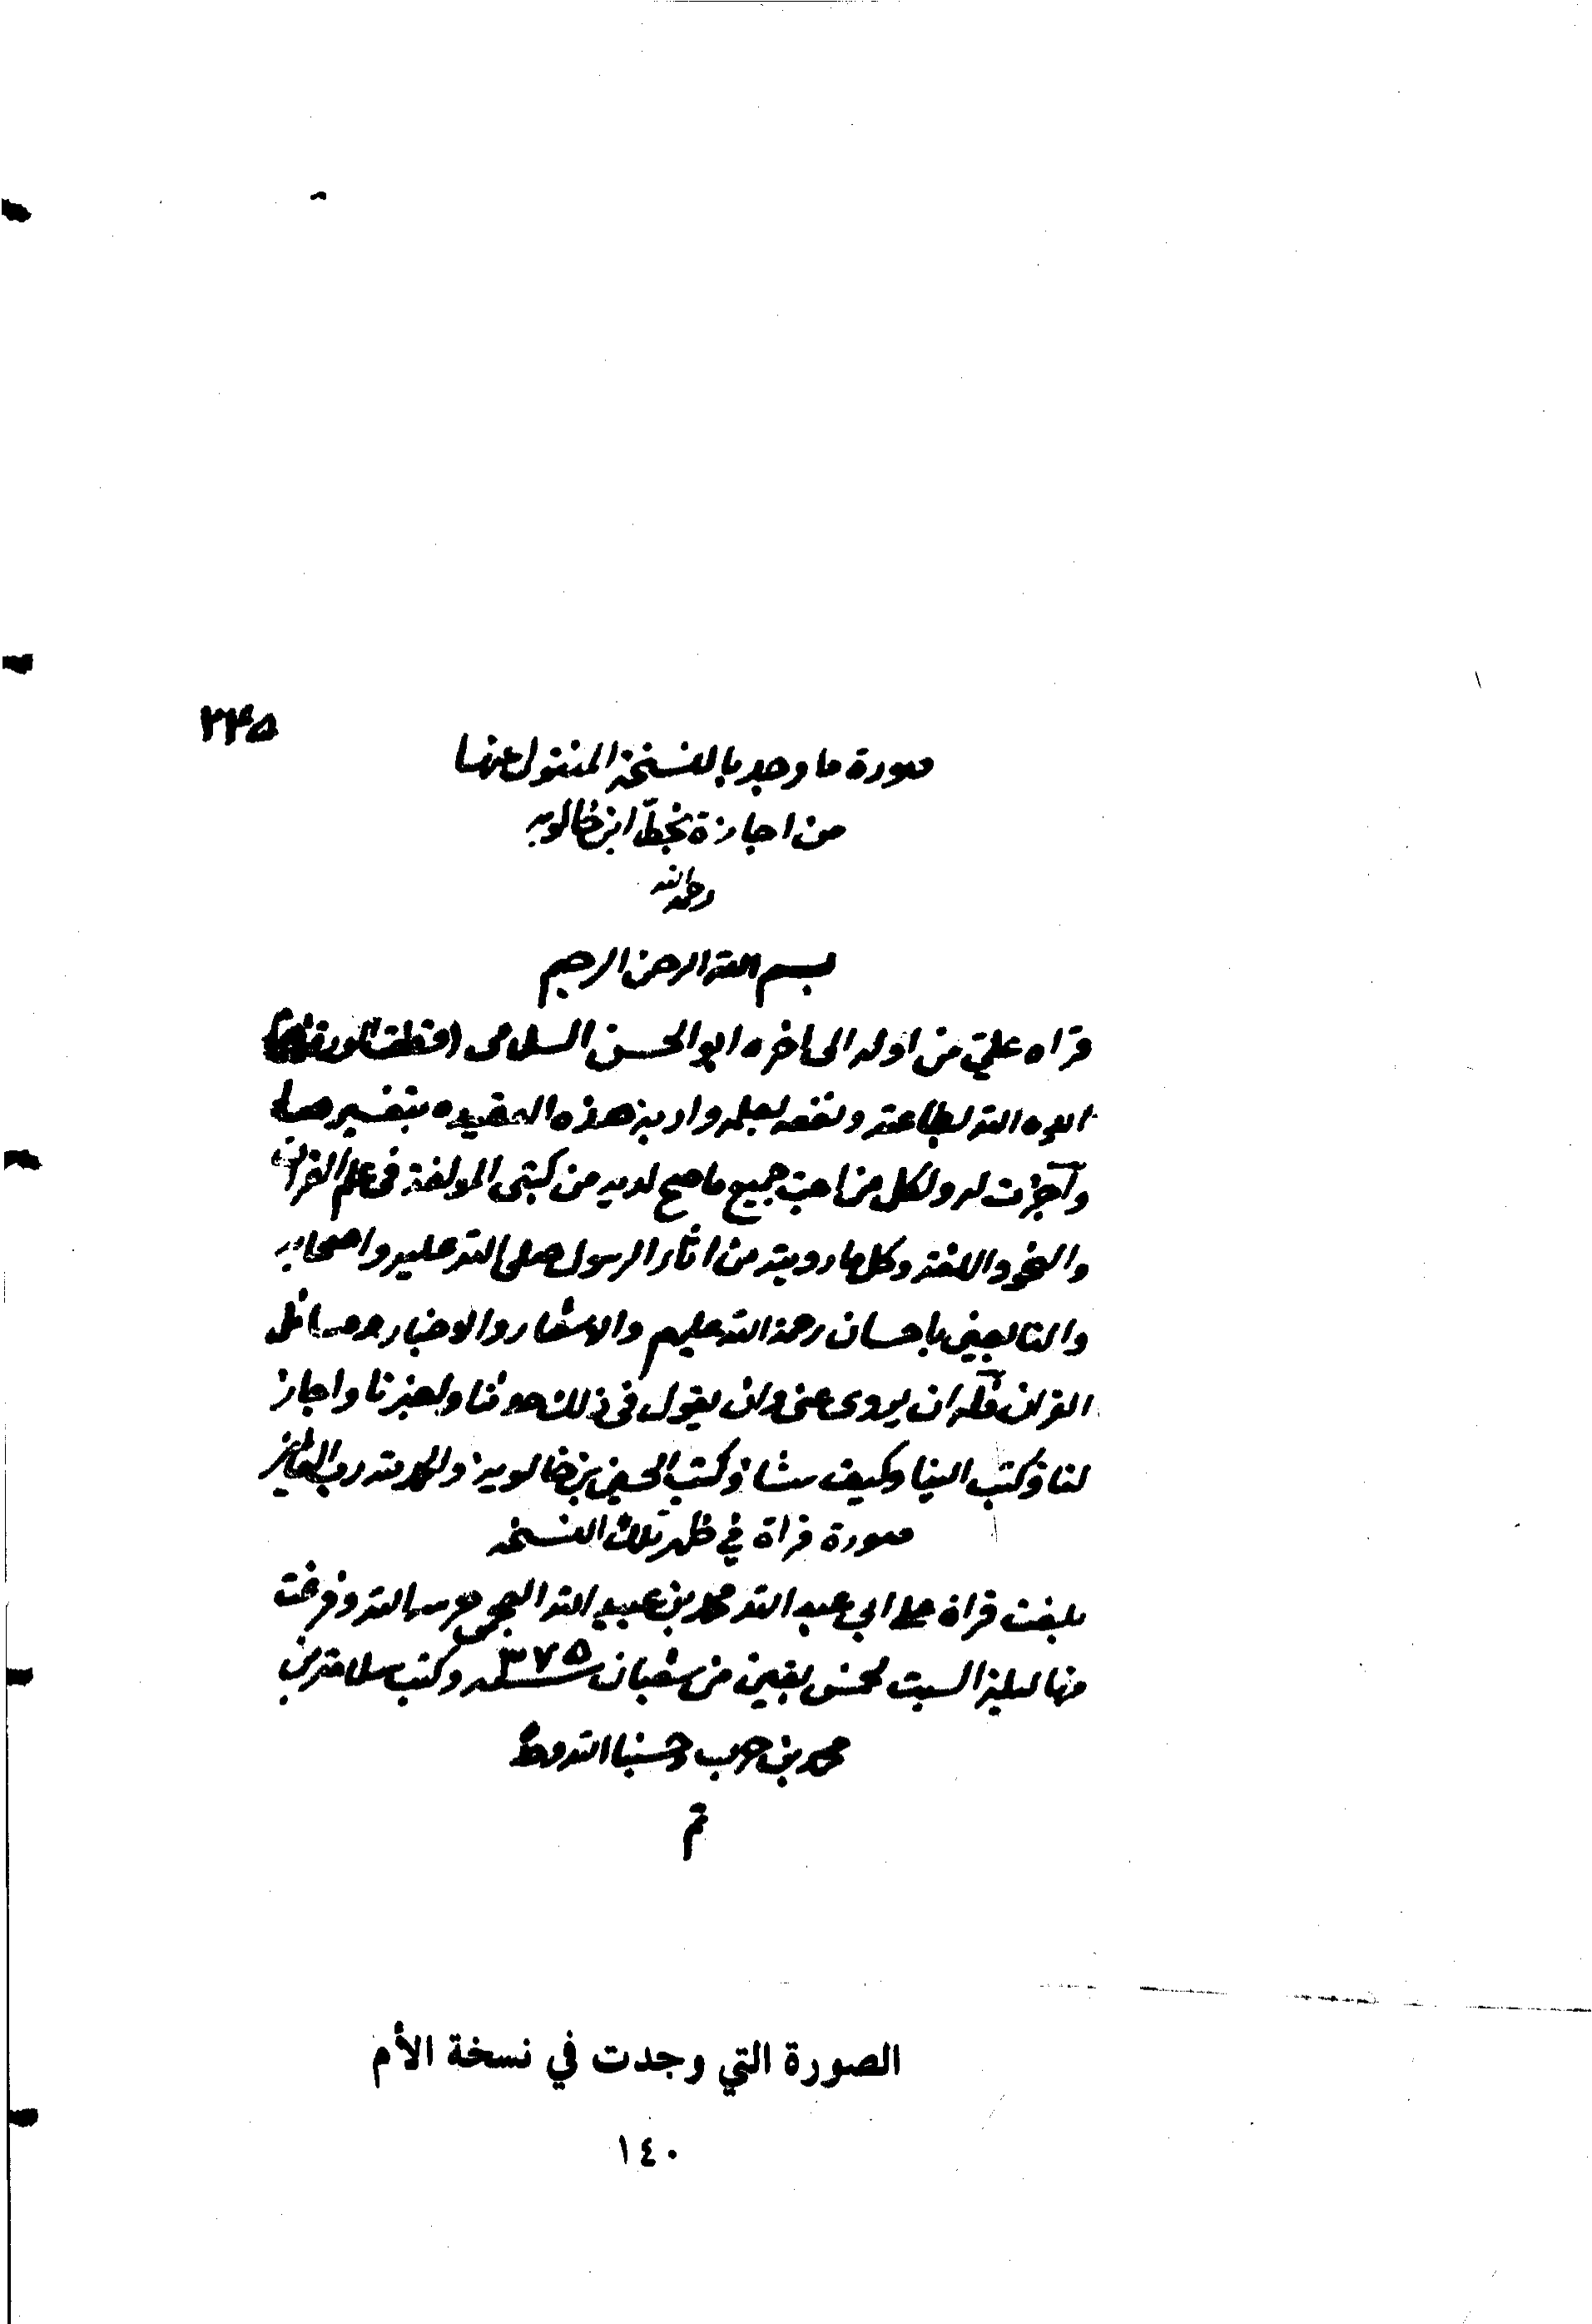 ٢٤٥
صورة ما وجد بالنسخة المنقول عنها
من اجازة بخطّ ابن خالويه
رحمه الله
بسم الله الرحمن الرحيم
قراه عليّ من اوله الى اخره ابو الحسن السلامى
ايده الله لطاعته ونفعه بعلمه هذه القصيده بتفسيرها
واجزت له ولكل من احبّ جميع ما صح لديه من كتبى المولفة فى علم القران
والنحو واللغة وكل ما رويته من اثار الرسول صلى الله عليه واصحابه
والتابعين باحسان رحمة الله عليهم والاشعار والاخبار ومسائل
القران فله ان يروى عنى وان يقول فى ذلك حدثنا واخبرنا واجاز
لنا وكتب الينا وكيف شا وكتب الحسين بن خالويه والحمد لله رب العالمين
صورة قراة في ظهر تلك النسخه
بلغت قراة على ابي عبد الله محمد بن عبيد الله حرسه الله وفرغت
منها ليلة السبت لخمس بقين من شعبان سنه ٣٧٥ وكتب سلامة بن
محمد بن حرب حسبنا الله وحده
تم
الصورة التي وجدت في نسخة الأم
١٤٠